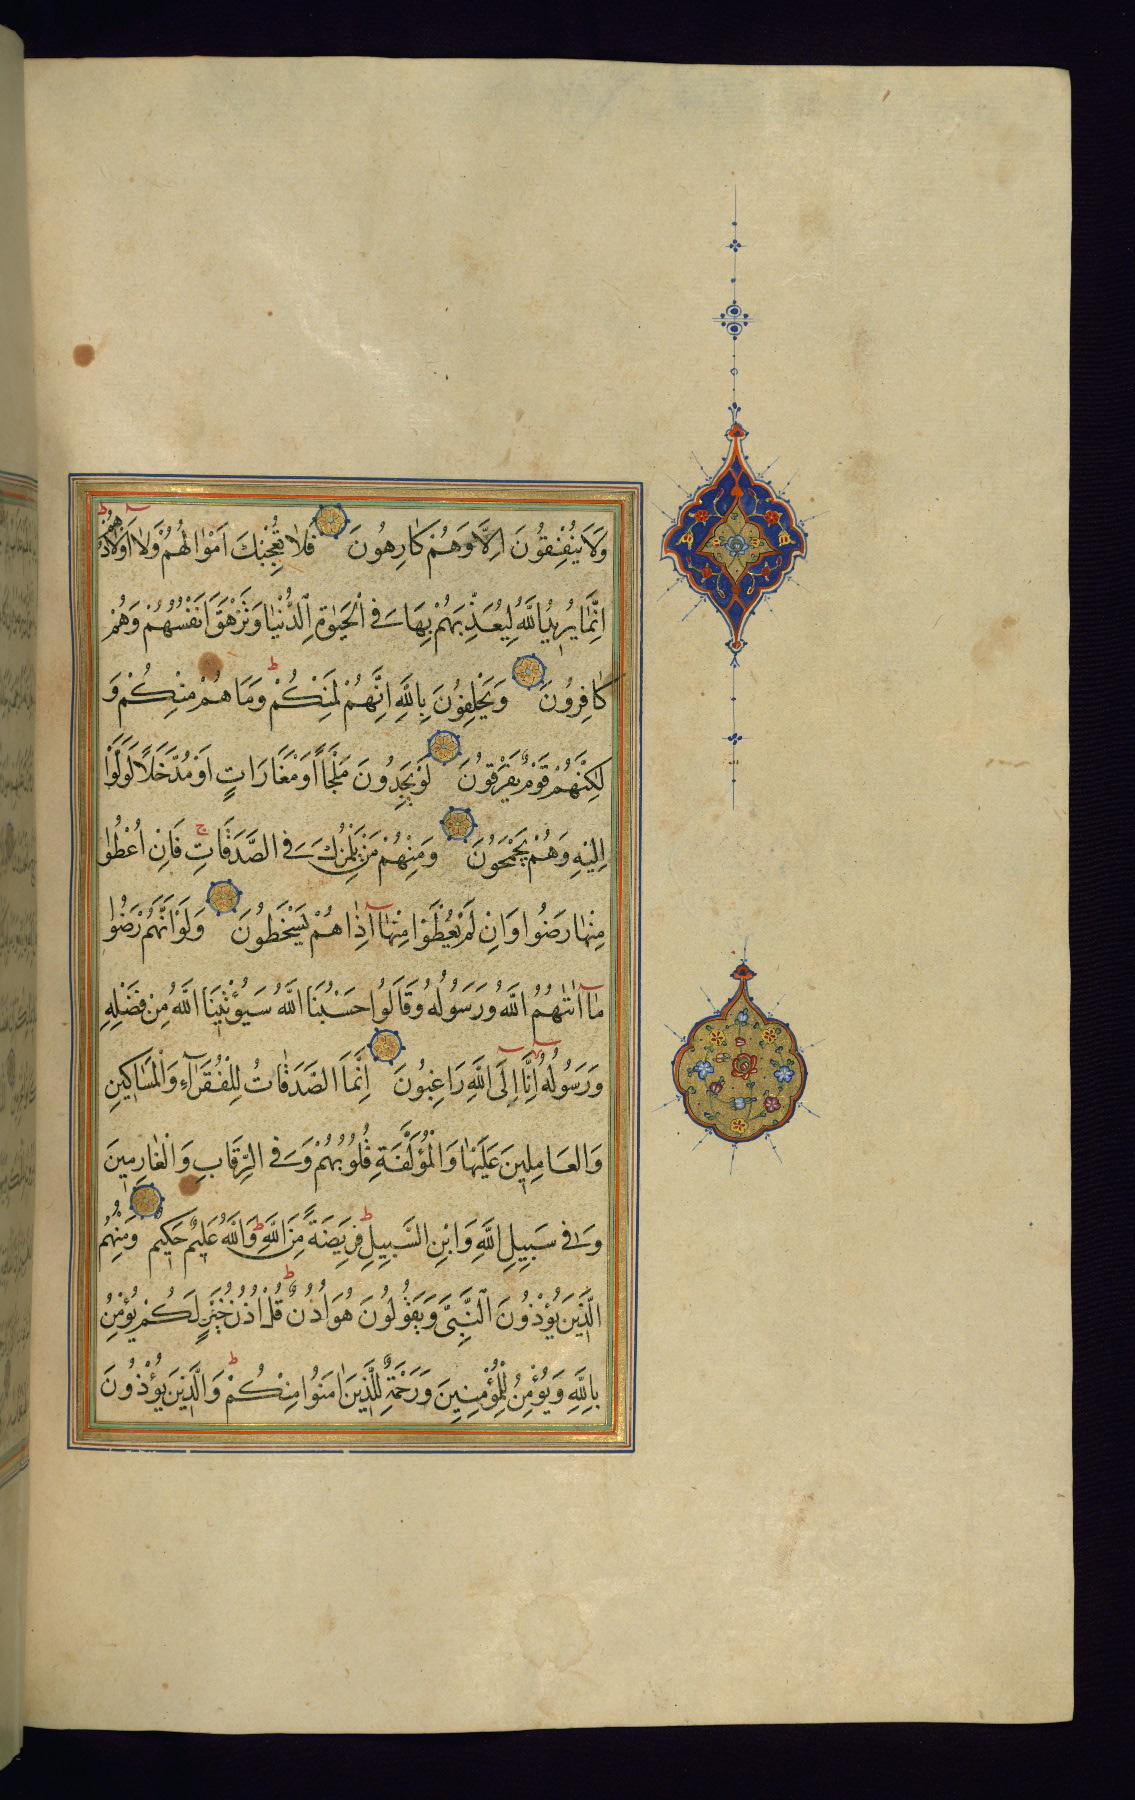 وَلَا يُنْفِقُونَ اِلَّا وَهُمْ كَارِهُونَ فَلَا تُعْجِبْكَ اَمْوَالُهُمْ وَلَا اَوْلَادُهُمْ
اِنَّمَا يُرِيدُ اللَّهُ لِيُعَذِّبَهُمْ بِهَا فِي الْحَيٰوةِ الدُّنْيَا وَتَزْهَقَ اَنْفُسُهُمْ وَهُمْ
كَافِرُونَ وَيَحْلِفُونَ بِاللَّهِ اِنَّهُمْ لَمِنْكُمْ وَمَا هُمْ مِنْكُمْ وَ
لٰكِنَّهُمْ قَوْمٌ يَفْرَقُونَ لَوْ يَجِدُونَ مَلْجَأً اَوْ مَغَارَاتٍ اَوْ مُدَّخَلًا لَوَلَّوْا
اِلَيْهِ وَهُمْ يَجْمَحُونَ وَمِنْهُمْ مَنْ يَلْمِزُكَ فِي الصَّدَقَاتِ فَاِنْ اُعْطُوا
مِنْهَا رَضُوا وَاِنْ لَمْ يُعْطَوْا مِنْهَا اِذَا هُمْ يَسْخَطُونَ وَلَوْ اَنَّهُمْ رَضُوا
مَا اٰتٰهُمُ اللَّهُ وَرَسُولُهُ وَقَالُوا حَسْبُنَا اللَّهُ سَيُؤْتِينَا اللَّهُ مِنْ فَضْلِهِ
وَرَسُولُهُ اِنَّا اِلَى اللَّهِ رَاغِبُونَ اِنَّمَا الصَّدَقَاتُ لِلْفُقَرَاءِ وَالْمَسَاكِينِ
وَالْعَامِلِينَ عَلَيْهَا وَالْمُؤَلَّفَةِ قُلُوبُهُمْ وَفِي الرِّقَابِ وَالْغَارِمِينَ
وَفِي سَبِيلِ اللَّهِ وَابْنِ السَّبِيلِ فَرِيضَةً مِنَ اللَّهِ وَاللَّهُ عَلِيمٌ حَكِيمٌ وَمِنْهُمُ
الَّذِينَ يُؤْذُونَ النَّبِيَّ وَيَقُولُونَ هُوَ اُذُنٌ قُلْ اُذُنُ خَيْرٍ لَكُمْ يُؤْمِنُ
بِاللَّهِ وَيُؤْمِنُ لِلْمُؤْمِنِينَ وَرَحْمَةٌ لِلَّذِينَ اٰمَنُوا مِنْكُمْ وَالَّذِينَ يُؤْذُونَ